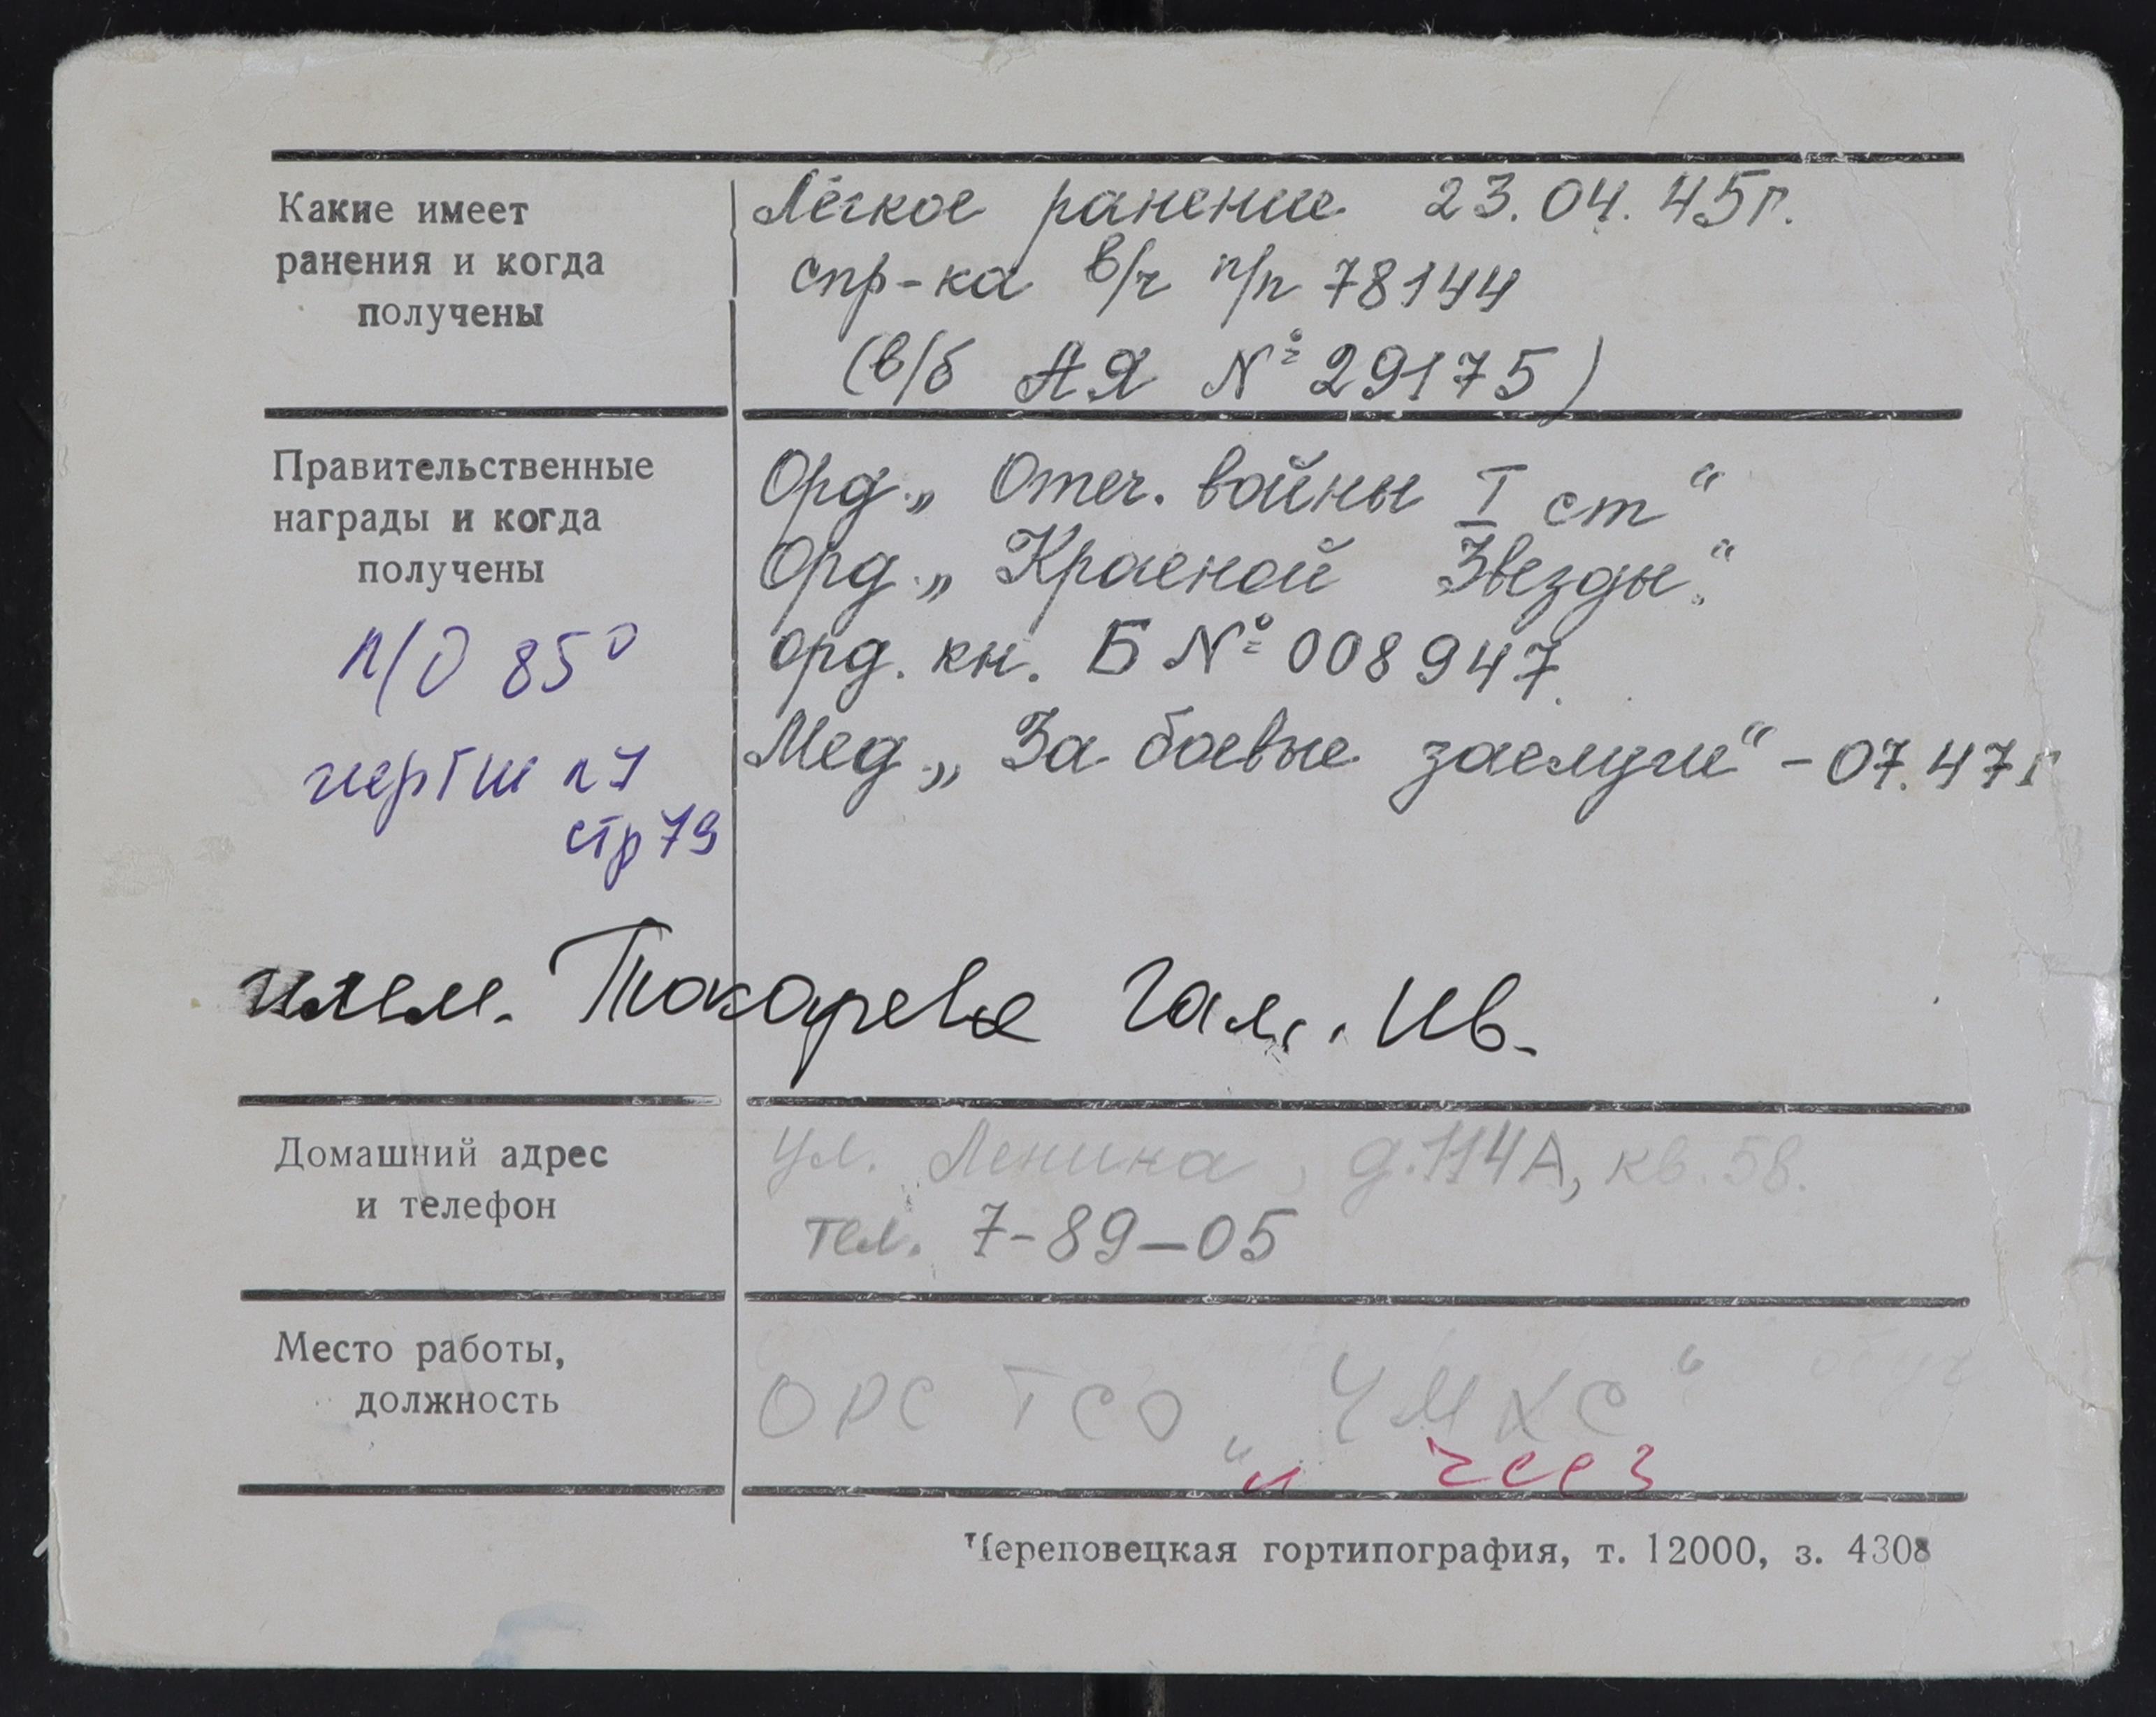 Какие имеет
ранения и когда
получены
Лёгкое ранение 23.04.45г.
спр-ка в/ч п/п 78144
(в/б АЯ № 29175)
Правительственные
награды и когда
получены
Орд. „Отеч. войны I ст“
Орд. „Красной Звезды“.
орд. кн. Б № 008947.
Мед. „За боевые заслуги“ - 07.47г
п/о 85
стр 79
Токарева Гал.. Ив.
Домашний адрес
и телефон
ул. Ленина, д.114А, кв.58.
тел. 7-89-05
Место работы,
должность
ОРС ТСО „ЧМКС“
Череповецкая гортипография, т. 12000, з. 4308